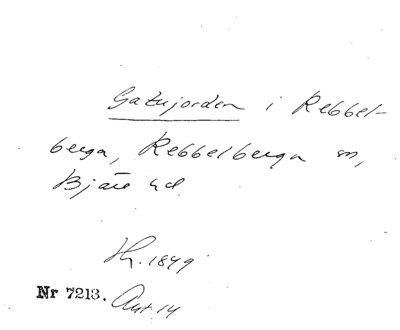 Gatujorden i Rebbel-
berga, Rebbelberga sn,
Bjäre hd.
Hh. 1849
Nr 7213. Ant. 14